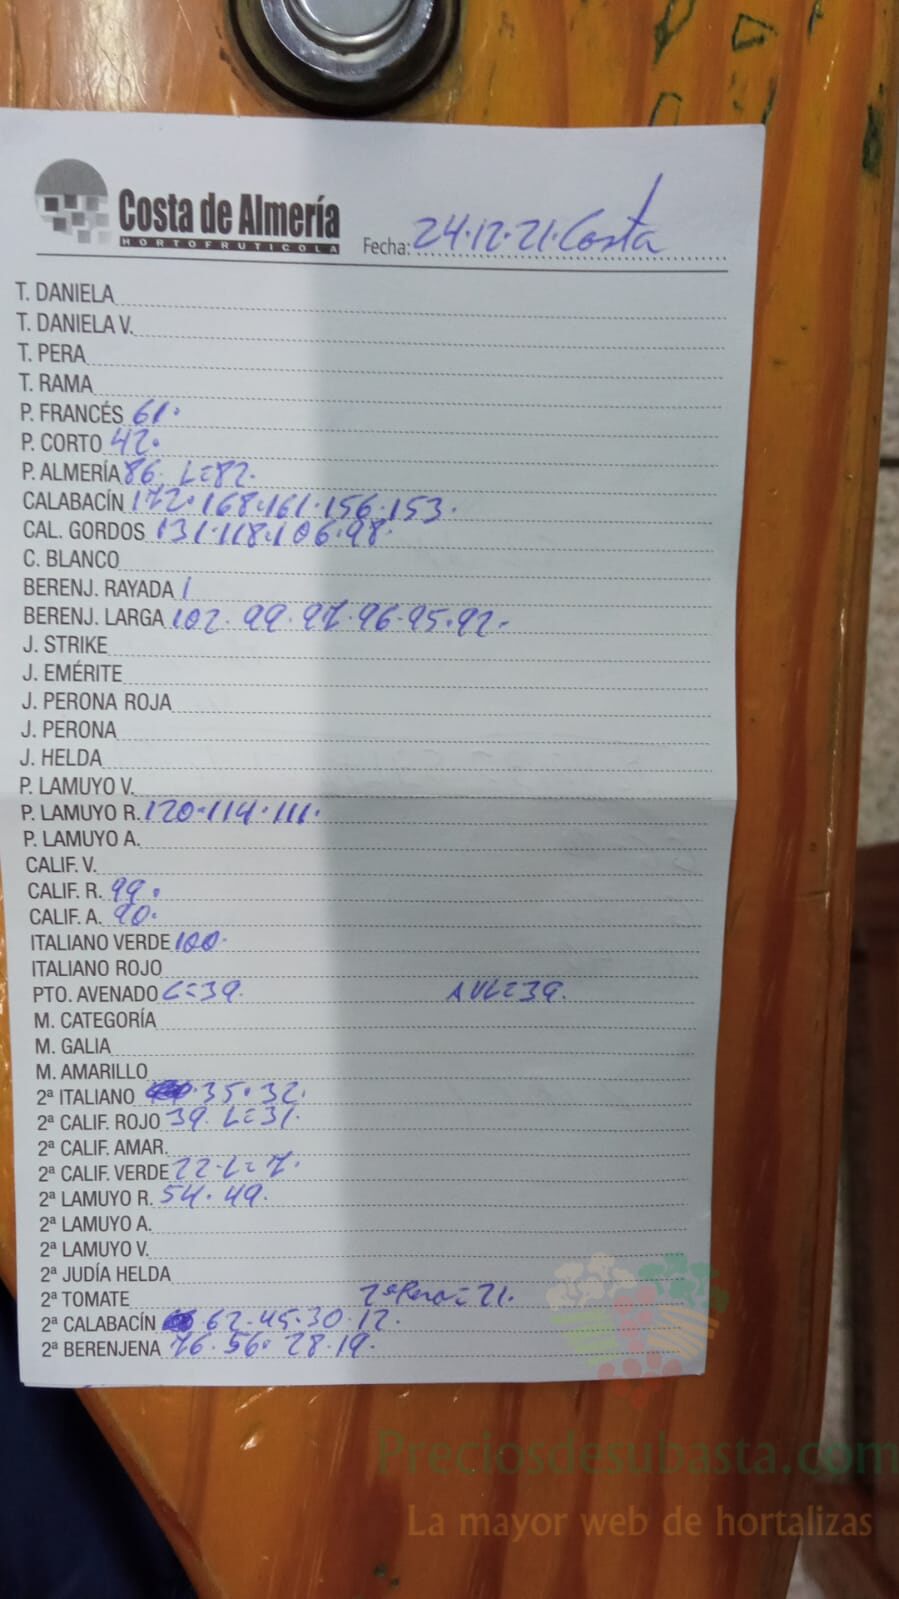 Costa de Almería
HORTOFRUTICOLA
Fecha: 24.12.21. Costa
T. DANIELA
T. DANIELA V.
T. PERA
T. RAMA
P. FRANCÉS 61.
P. CORTO 42.
P. ALMERÍA 86. L=82.
CALABACÍN 172.168.161.156.153.
CAL. GORDOS 131.118.106.98.
C. BLANCO
BERENJ. RAYADA
BERENJ. LARGA 102.99.97.96.95.92.
J. STRIKE
J. EMÉRITE
J. PERONA ROJA
J. PERONA
J. HELDA
P. LAMUYO V.
P. LAMUYO R. 120.114.111.
P. LAMUYO A.
CALIF. V.
CALIF. R. 99.
CALIF. A. 90.
ITALIANO VERDE 100.
ITALIANO ROJO
PTO. AVENADO L=39.
M. CATEGORÍA
M. GALIA
M. AMARILLO
2ª ITALIANO 35.32.
2ª CALIF. ROJO 39. L=31.
2ª CALIF. AMAR.
2ª CALIF. VERDE 22.L=7.
2ª LAMUYO R. 54.49.
2ª LAMUYO A.
2ª LAMUYO V.
2ª JUDÍA HELDA
2ª TOMATE 2ª Pera=21.
2ª CALABACÍN 62.45.30.12.
2ª BERENJENA 76.56.28.19.
Preciosdesubasta.com
La mayor web de hortalizas